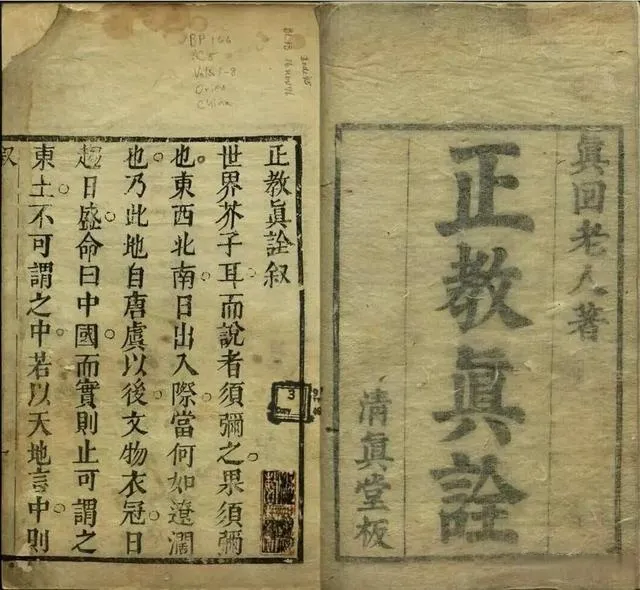 眞回老人著
正教眞詮
清眞堂板
正教眞詮叙
世界芥子耳而說者須彌之果須彌
也東西北南日出入際當何如遼濶
也乃此地自唐虞以後文物衣冠日
趨日盛命曰中國而實則止可謂之
東土不可謂之中若以天地言中則
叙
BP 166
China
3